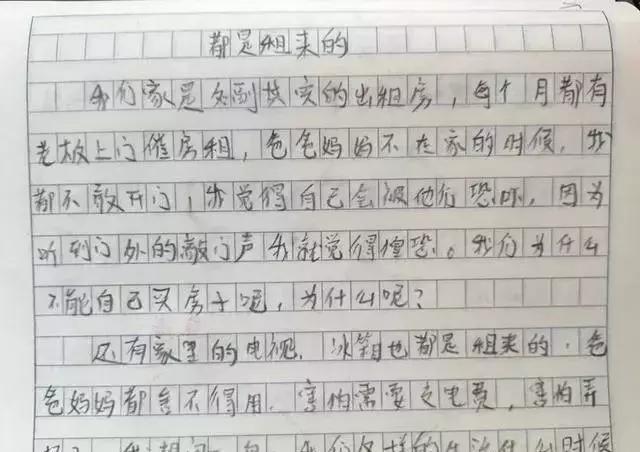 都是租来的
我们家是名副其实的出租房，每个月都有
老板上门催房租，爸爸妈妈不在家的时候，我
都不敢开门，我觉得自己会被他们恐吓，因为
听到门外的敲门声我就觉得惶恐。我们为什么
不能自己买房子呢，为什么呢？
还有家里的电视．冰箱也都是租来的．爸
爸妈妈都舍不得用．害怕需要交电费，害怕弄
我想问一句．我们这样的生活什么时候